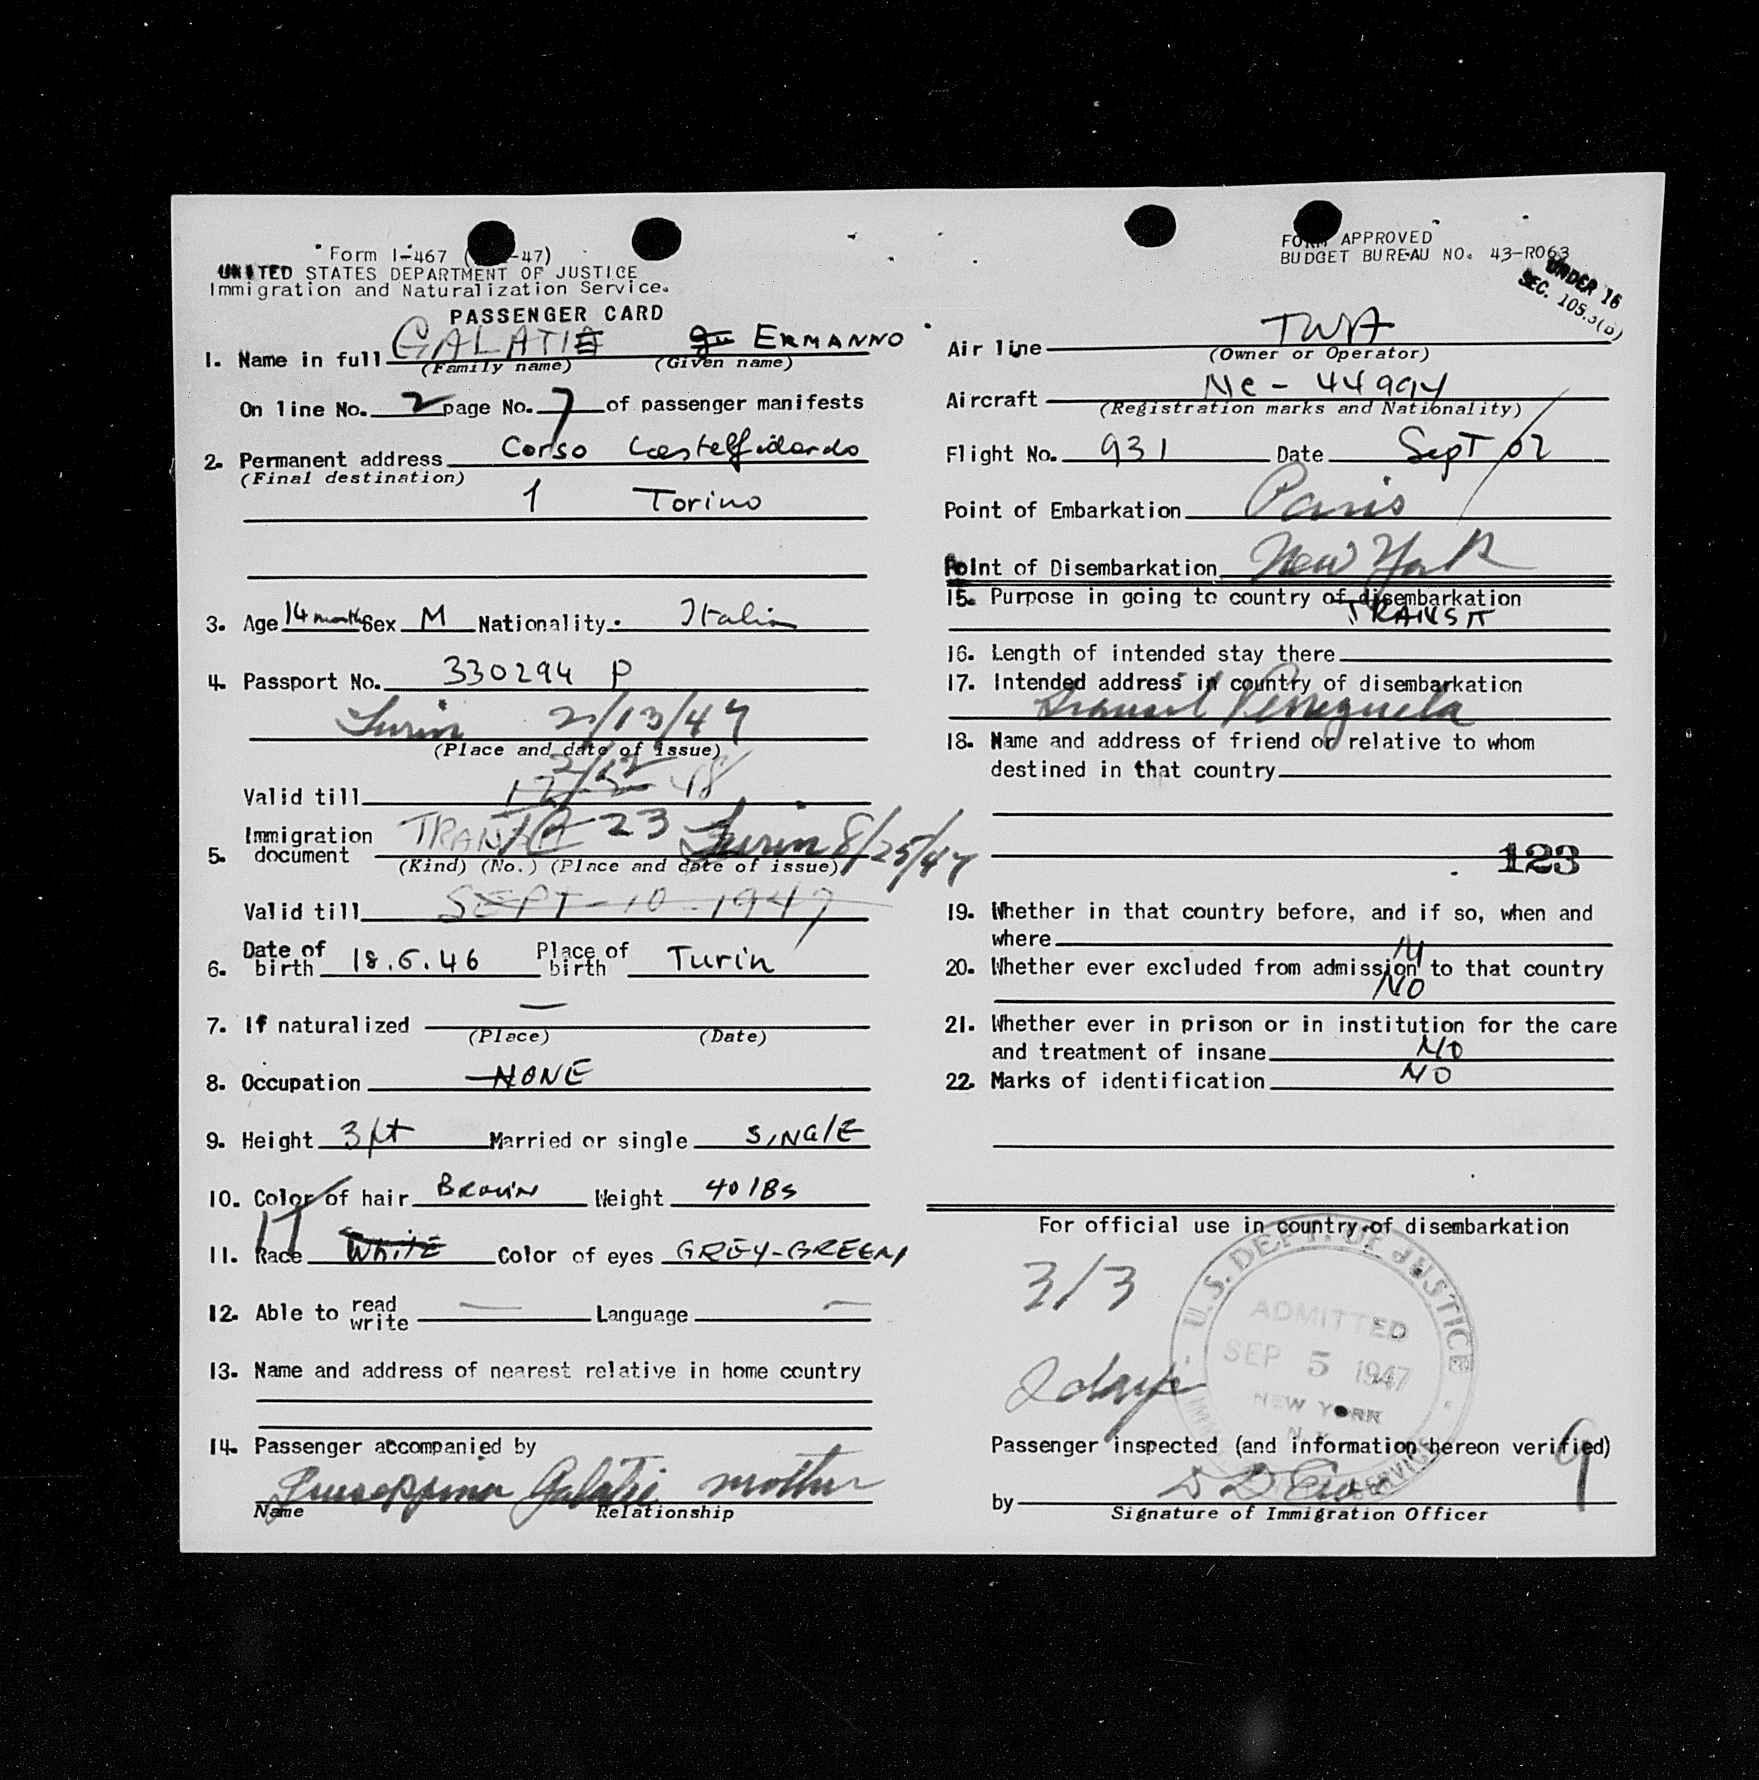 Form I-467 ( -47)
UNITED STATES DEPARTMENT OF JUSTICE
Immigration and Naturalization Service.
PASSENGER CARD
1. Name in full GALATIE ERMANNO
(Family name) (Given name)
On line No. 2 page No. 7 of passenger manifests
2. Permanent address Corso Castelfidardo
(Final destination)
1 Torino
3. Age 14 months Sex M Nationality. Italian
4. Passport No. 330294 P
Turin 2/13/47
(Place and date of issue)
Valid till 2/12 48
5. Immigration document TRANSIT 23 Turin 8/25/47
(Kind) (No.) (Place and date of issue)
Valid till SEPT-10-1947
6. Date of birth 18.6.46 Place of birth Turin
7. If naturalized —
(Place) (Date)
8. Occupation NONE
9. Height 3 ft Married or single SINGLE
10. Color of hair BROWN Weight 40 lBs
11. Race WHITE Color of eyes GREY-GREEN
IT
12. Able to read write — Language —
13. Name and address of nearest relative in home country
14. Passenger accompanied by
Giuseppina Galatie mother
Name Relationship
FORM APPROVED
BUDGET BUREAU NO. 43-R063
UNDER 16
SEC. 105.3(B)
Air line TWA
(Owner or Operator)
Aircraft NC-44994
(Registration marks and Nationality)
Flight No. 931 Date Sept 02
Point of Embarkation Paris
Point of Disembarkation New York
15. Purpose in going to country of disembarkation
TRANSIT
16. Length of intended stay there
17. Intended address in country of disembarkation
Transit Venezuela
18. Name and address of friend or relative to whom
destined in that country
123
19. Whether in that country before, and if so, when and
where
20. Whether ever excluded from admission to that country
NO
21. Whether ever in prison or in institution for the care
and treatment of insane NO
22. Marks of identification NO
For official use in country of disembarkation
3/3
U.S. DEPT. OF JUSTICE
ADMITTED
SEP 5 1947
NEW YORK
N.Y.
SERVICE
2 days
Passenger inspected (and information hereon verified)
9
by
Signature of Immigration Officer